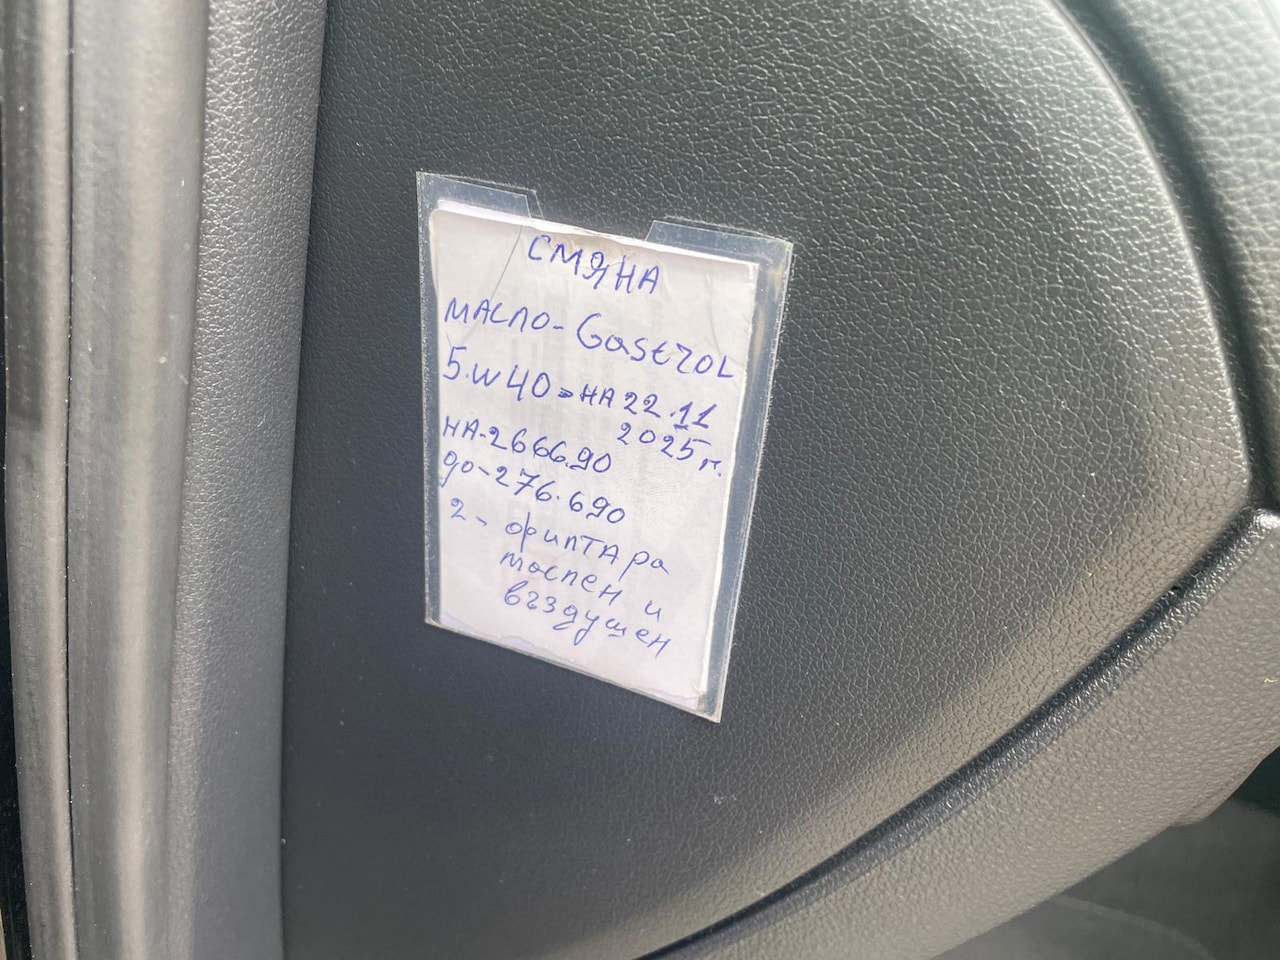 СМЯНА
МАСЛО - Gastrol
5.W40 - НА 22.11
2025 г.
НА - 2666.90
до - 276.690
2 - филтара
маслен и
въздушен